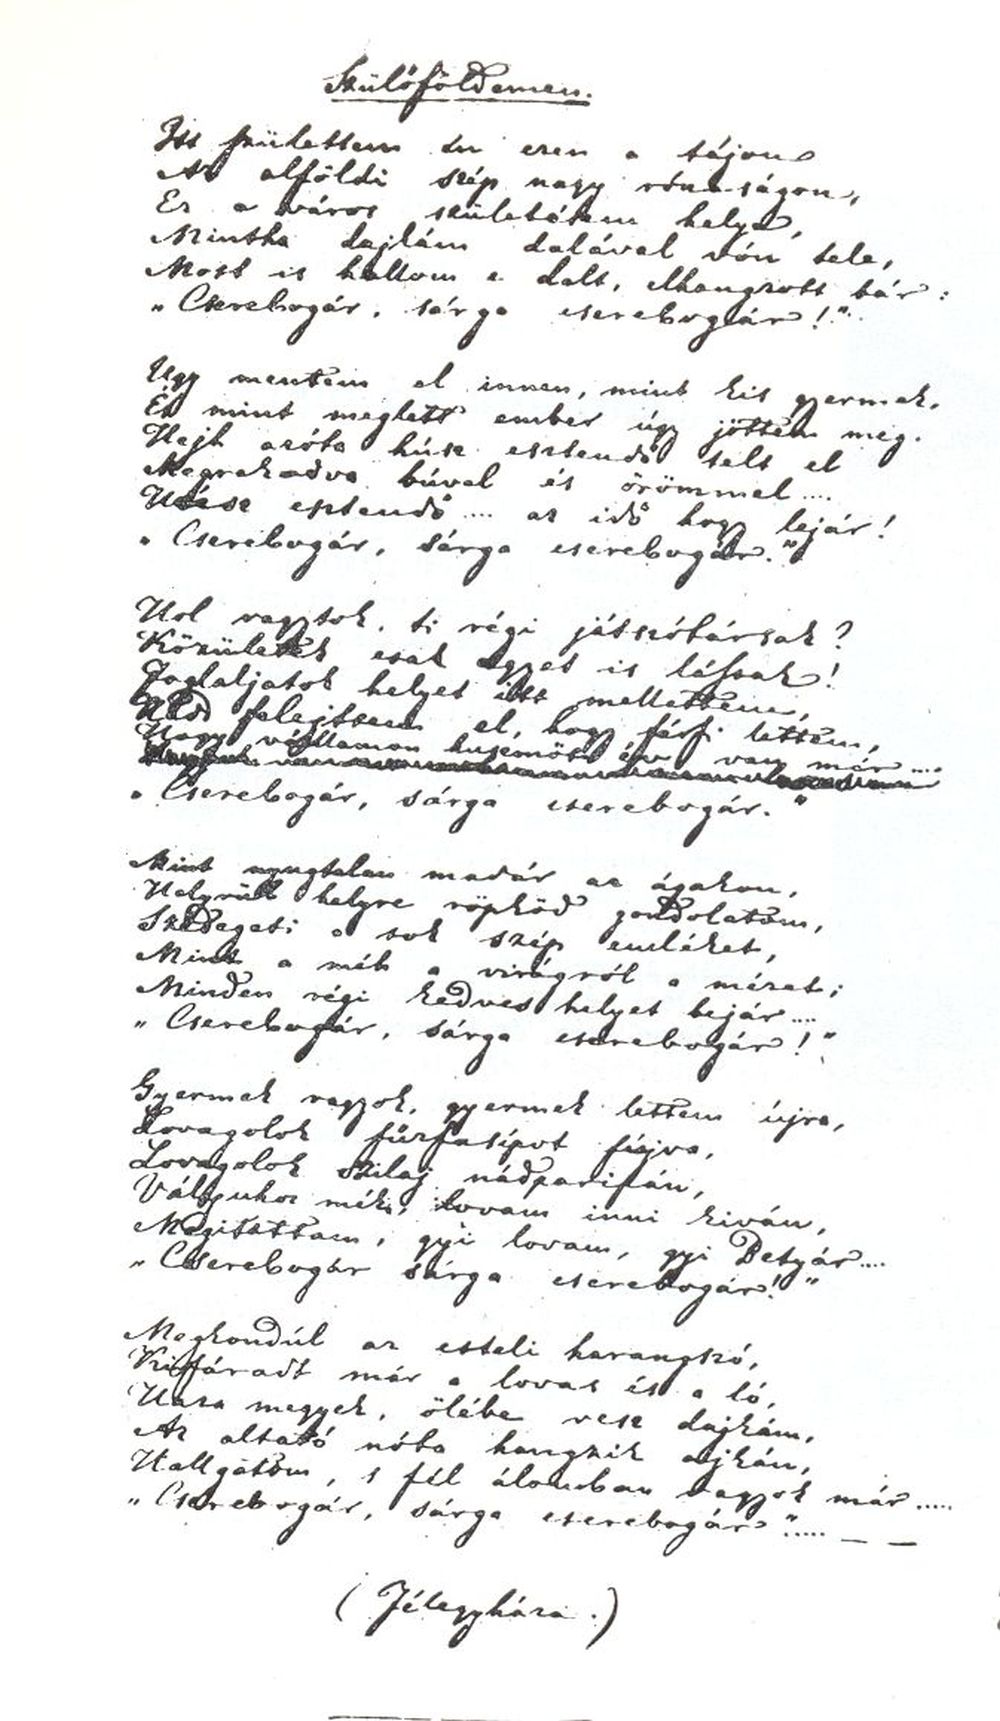 Szülőföldemen.
Itt születtem én ezen a tájon
Az alföldi szép nagy rónaságon,
Ez a város születésem helye,
Mintha dajkám dalával vón tele,
Most is hallom e dalt, elhangzott bár:
„Cserebogár, sárga cserebogár!"
Ugy mentem el innen, mint kis gyermek,
És mint meglett ember úgy jöttem meg.
Hejh azóta húsz esztendő telt el
Megrakodva búval és örömmel....
Húsz esztendő... az idő hogy lejár!
„Cserebogár, sárga cserebogár."
Hol vagytok, ti régi játszótársak?
Közületek csak egyet is lássak!
Foglaljatok helyet itt mellettem,
Had felejtsem el, hogy férfi lettem,
Hogy vállamon huszonöt év van már....
„Cserebogár, sárga cserebogár."
Mint nyugtalan madár az ágakon,
Helyrül helyre röpköd gondolatom,
Szedegeti a sok szép emléket,
Mint a méh a virágról a mézet;
Minden régi kedves helyet bejár....
„Cserebogár, sárga cserebogár!"
Gyermek vagyok, gyermek lettem újra,
Lovagolok fűzfasípot fújva,
Lovagolok szilaj nádparipán,
Vályuhoz mék, lovam inni kiván,
Megitattam, gyi lovam, gyi Betyár....
„Cserebogár sárga cserebogár!"
Megkondúl az esteli harangszó,
Kifáradt már a lovas és a ló,
Haza megyek, ölébe vesz dajkám,
Az altató nóta hangzik ajkán,
Hallgatom, s fél álomban vagyok már.....
„Cserebogár, sárga cserebogár"..... _ _
(Félegyháza.)